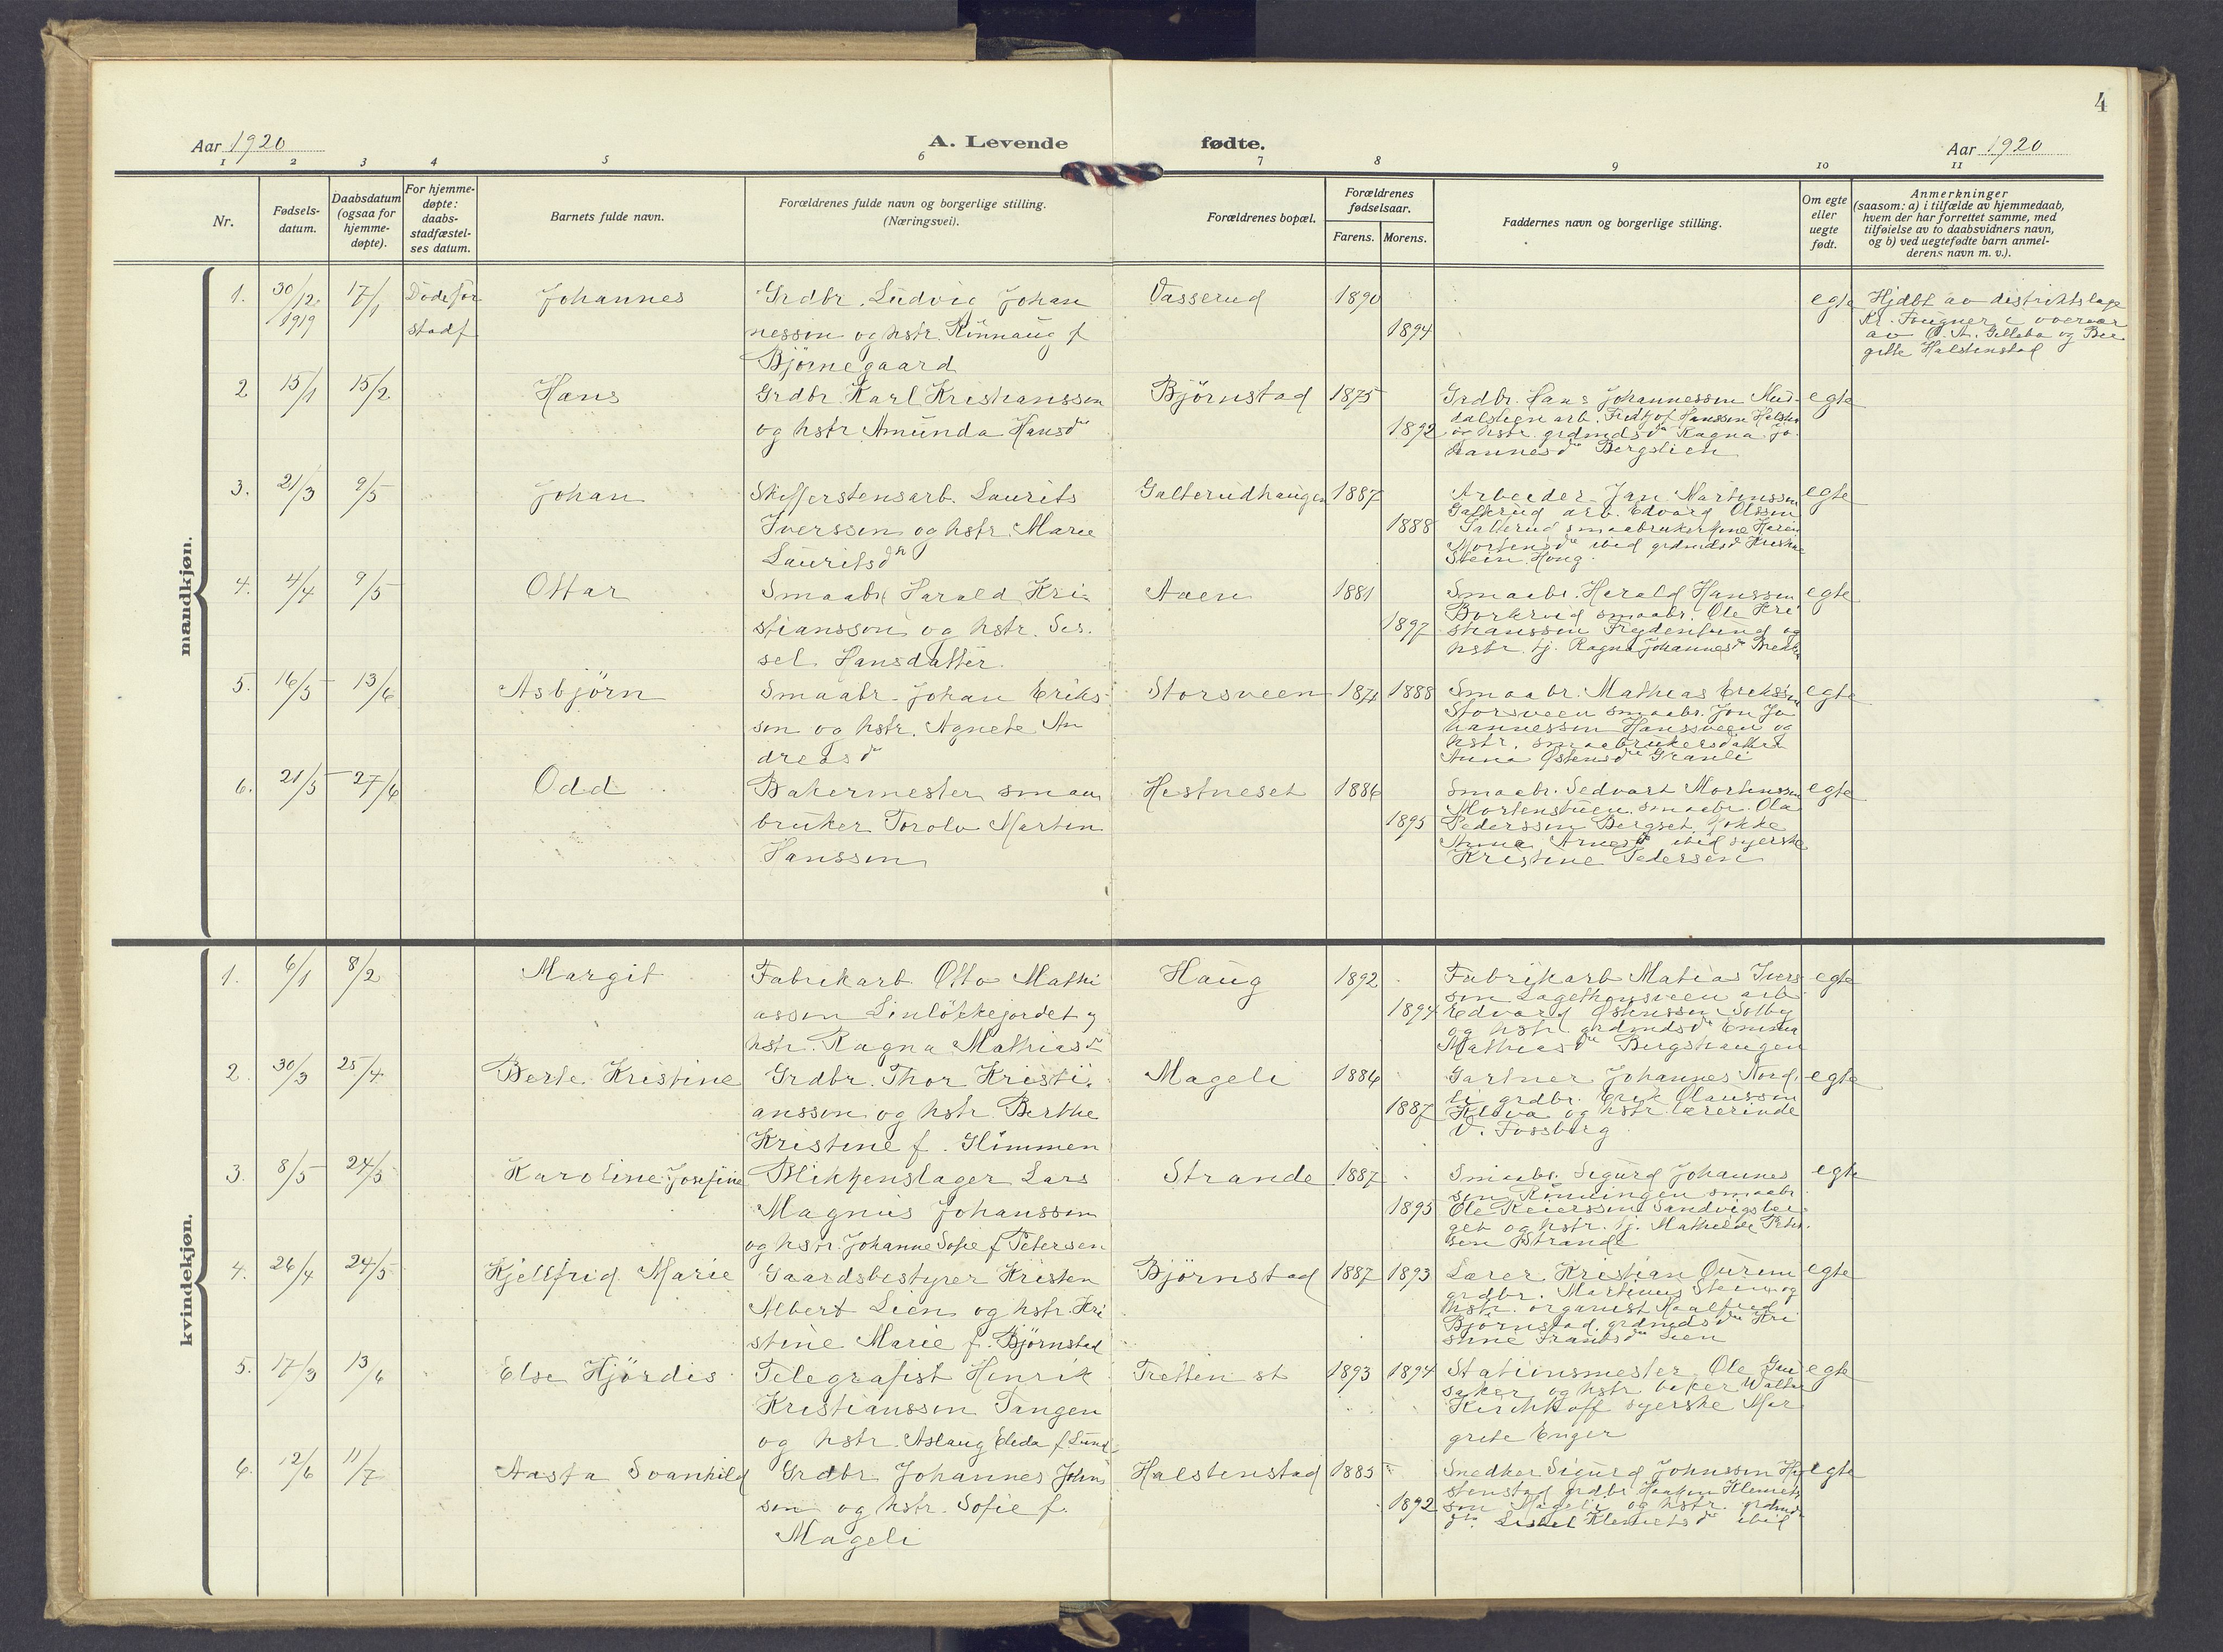 4
Aar 1920
A. Levende fødte.
Aar 1920
1 2 3 4 5 6 7 8 9 10 11
Nr.
Fødsels-
datum.
Daabsdatum
(ogsaa for
hjemme-
døpte).
For hjemme-
døpte:
daabs-
stadfæstel-
ses datum.
Barnets fulde navn.
Forældrenes fulde navn og borgerlige stilling.
(Næringsvei).
Forældrenes bopæl.
Forældrenes
fødselsaar.
Farens. Morens.
Faddernes navn og borgerlige stilling.
Om egte
eller
uegte
født.
Anmerkninger
(saasom: a) i tilfælde av hjemmedaab,
hvem der har forrettet samme, med
tilføielse av to daabsvidners navn,
og b) ved uegtefødte barn anmel-
derens navn m. v.).
mandkjøn.
1. 30/12 1919 17/1 Døde før
stadf
Johannes
Grdbr. Ludvig Johan
nesson og hstr. Rönnaug f
Bjørnegaard
Vasserud 1890
1894
egte
Hjdbt av distriktslæge
Kr. Fougner i overvær
av
gitte Halstenstad
2 15/1 15/2 Hans
Grdbr Karl Kristiansson
og hstr Amunda Hansdr
Bjørnstad 1875
1892
Grdbr. Hans Johannesson
arb. Fredtjof Hansson
hstr. grdmdsdr Ragna Jo
hannesdr Bergslien
egte
3. 21/3 9/5 Johan
Skifferstensarb. Laurits
Iversson og hstr. Marie
Lauritsdtr
Galterudhaugen 1887
1888
Arbeider Jan Martinsson
Galterud arb. Edvard Olsson
Galterud smaabrukerkone Karen
Mortensdr ibid grdmdsd
Stein Haug.
egte
4. 4/4 9/5 Ottar
Smaabr Harald Kri-
stiansson og hstr. Sis-
sel Hansdatter
Aaen 1881
1897
Smaabr. Harald Hansson
smaabr. Ole Kri
stiansson Frydenlund og
hstr. tj. Ragna Johannesdr
egte
5. 16/5 13/6 Asbjörn
Smaabr. Johan Eriks-
son og hstr. Agnete An
dreasdr
Storsveen 1874 1888
Smaabr. Mathias Eriksson
Storsveen smaabr. Jon Jo
hannesson Hanssveen og
hstr. smaabrukersdatter
Anna Østensdr Granli
egte
6. 21/5 27/6 Odd
Bakermester smaa
bruker Torolv Marten
Hansson
Hestneset 1886
1895
Smaabr. Sedvart Mortensson
Mortenstuen smaabr. Ola
Pedersson Bergset, kokke
Anna Arnesdr ibid syerske
Kristine Pedersen
egte
kvindekjøn.
1. 6/1 8/2 Margit
Fabrikarb Otto Mathi
asson Linløkkejordet og
hstr. Ragna Mathiasdr
Haug 1892
1894
Fabrikarb Matias Ivers
son arb
Edvard Østensson Solby
og hstr. grdmdsdr Emma
Mathiasdr Bergshaugen
egte
2. 30/3 25/4 Berte Kristine
Grdbr. Thor Kristi-
ansson og hstr Berthe
Kristine f. Glimmen
Mageli 1886
1887
Gartner Johannes Nord-
li grdbr. Erik Olausson
Kleva og hstr lærerinde
V. Fossberg
egte
3. 8/5 24/5 Karoline Josefine
Blikkenslager Lars
Magnus Johansson
og hstr. Johanne Sofie f Petersen
Strande 1887
1895
Smaabr. Sigurd Johannes
son Rønningen smaabr
Ole Reiersson Sandvigsber-
get og hstr. tj. Mathilde Peter-
sen Strande
egte
4. 26/4 24/5 Kjellfrid Marie
Gaardsbestyrer Kristen
Albert Lien og hstr. Kri
stine Marie f. Bjørnstad
Bjørnstad 1887 1893
Lærer Kristian
grdbr. Martinus Stein og
hstr. organist
Bjørnstad, grdmdsdr Kri
stine Frantsdr Lien
egte
5. 17/3 13/6 Else Hjördis
Telegrafist Henrik
Kristiansson Tangen
og hstr. Aslaug Eleda f. Lund
Tretten st 1893 1894
Stationsmester Ole Gul
saker og hstr baker Walter
Kirchhoff syerske Mar
grete Enger
egte
6. 12/6 11/7 Aasta Svanhild
Grdbr Johannes Johns
son og hstr. Sofie f.
Mageli
Halstenstad 1885
1892
Snedker Sigurd Johnsson Hal
stenstad grdbr. Haaken Klemets
son Mageli og hstr. grdmds
dtr. Klemetsdr ibid
egte